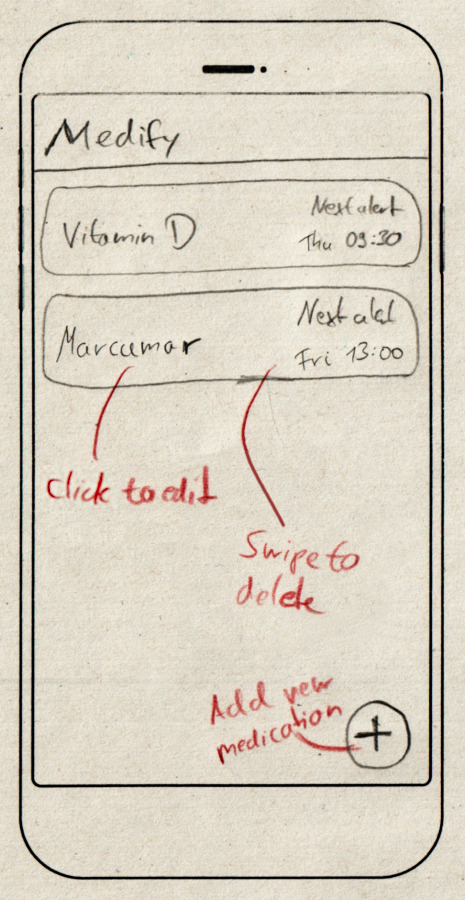 Medify
Vitamin D
Next alert
Thu 09:30
Marcumar
Next alert
Fri 13:00
Click to edit
Swipe to
delete
Add new
medication
+